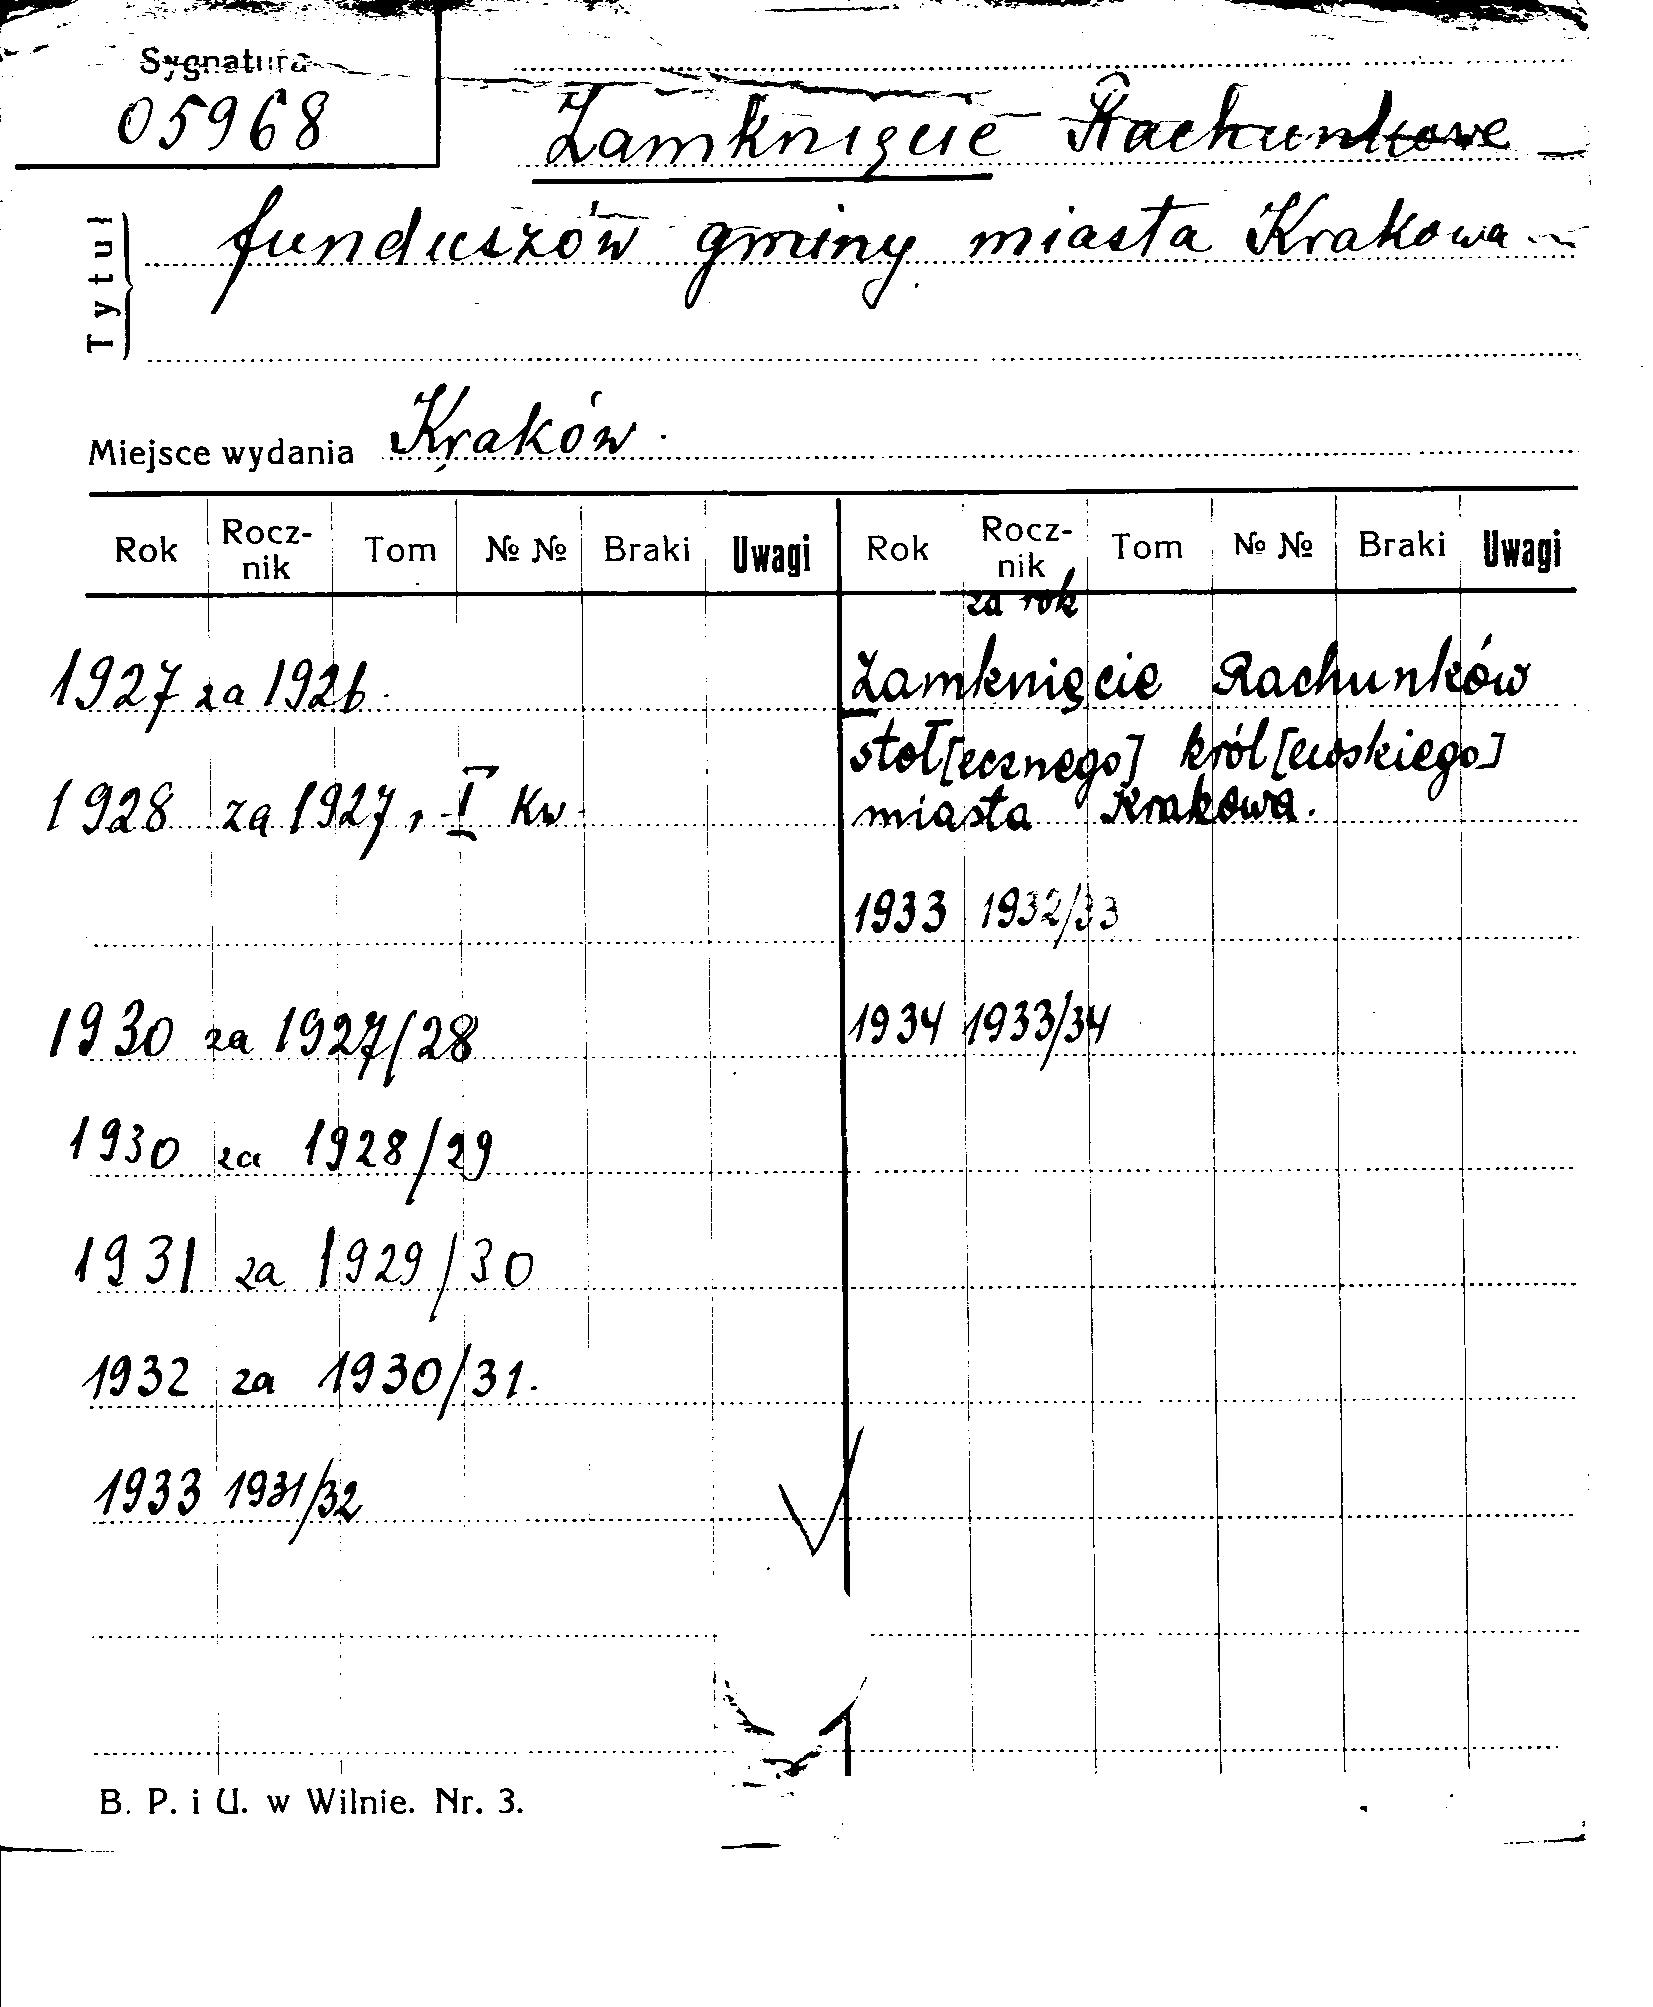 Sygnatura
05968
Zamknięcie Rachunkowe
Tytuł
funduszów gminy miasta Krakowa
Miejsce wydania Kraków.
Rok Rocz-nik Tom № № Braki Uwagi Rok Rocz-nik Tom № № Braki Uwagi
za rok
1927 za 1926.
Zamknięcie Rachunków
stoł[ecznego] król[ewskiego]
1928 za 1927, I Kw.
miasta Krakowa.
1933 1932/33
1930 za 1927/28
1934 1933/34
1930 za 1928/29
1931 za 1929/30
1932 za 1930/31.
1933 1931/32
B. P. i U. w Wilnie. Nr. 3.